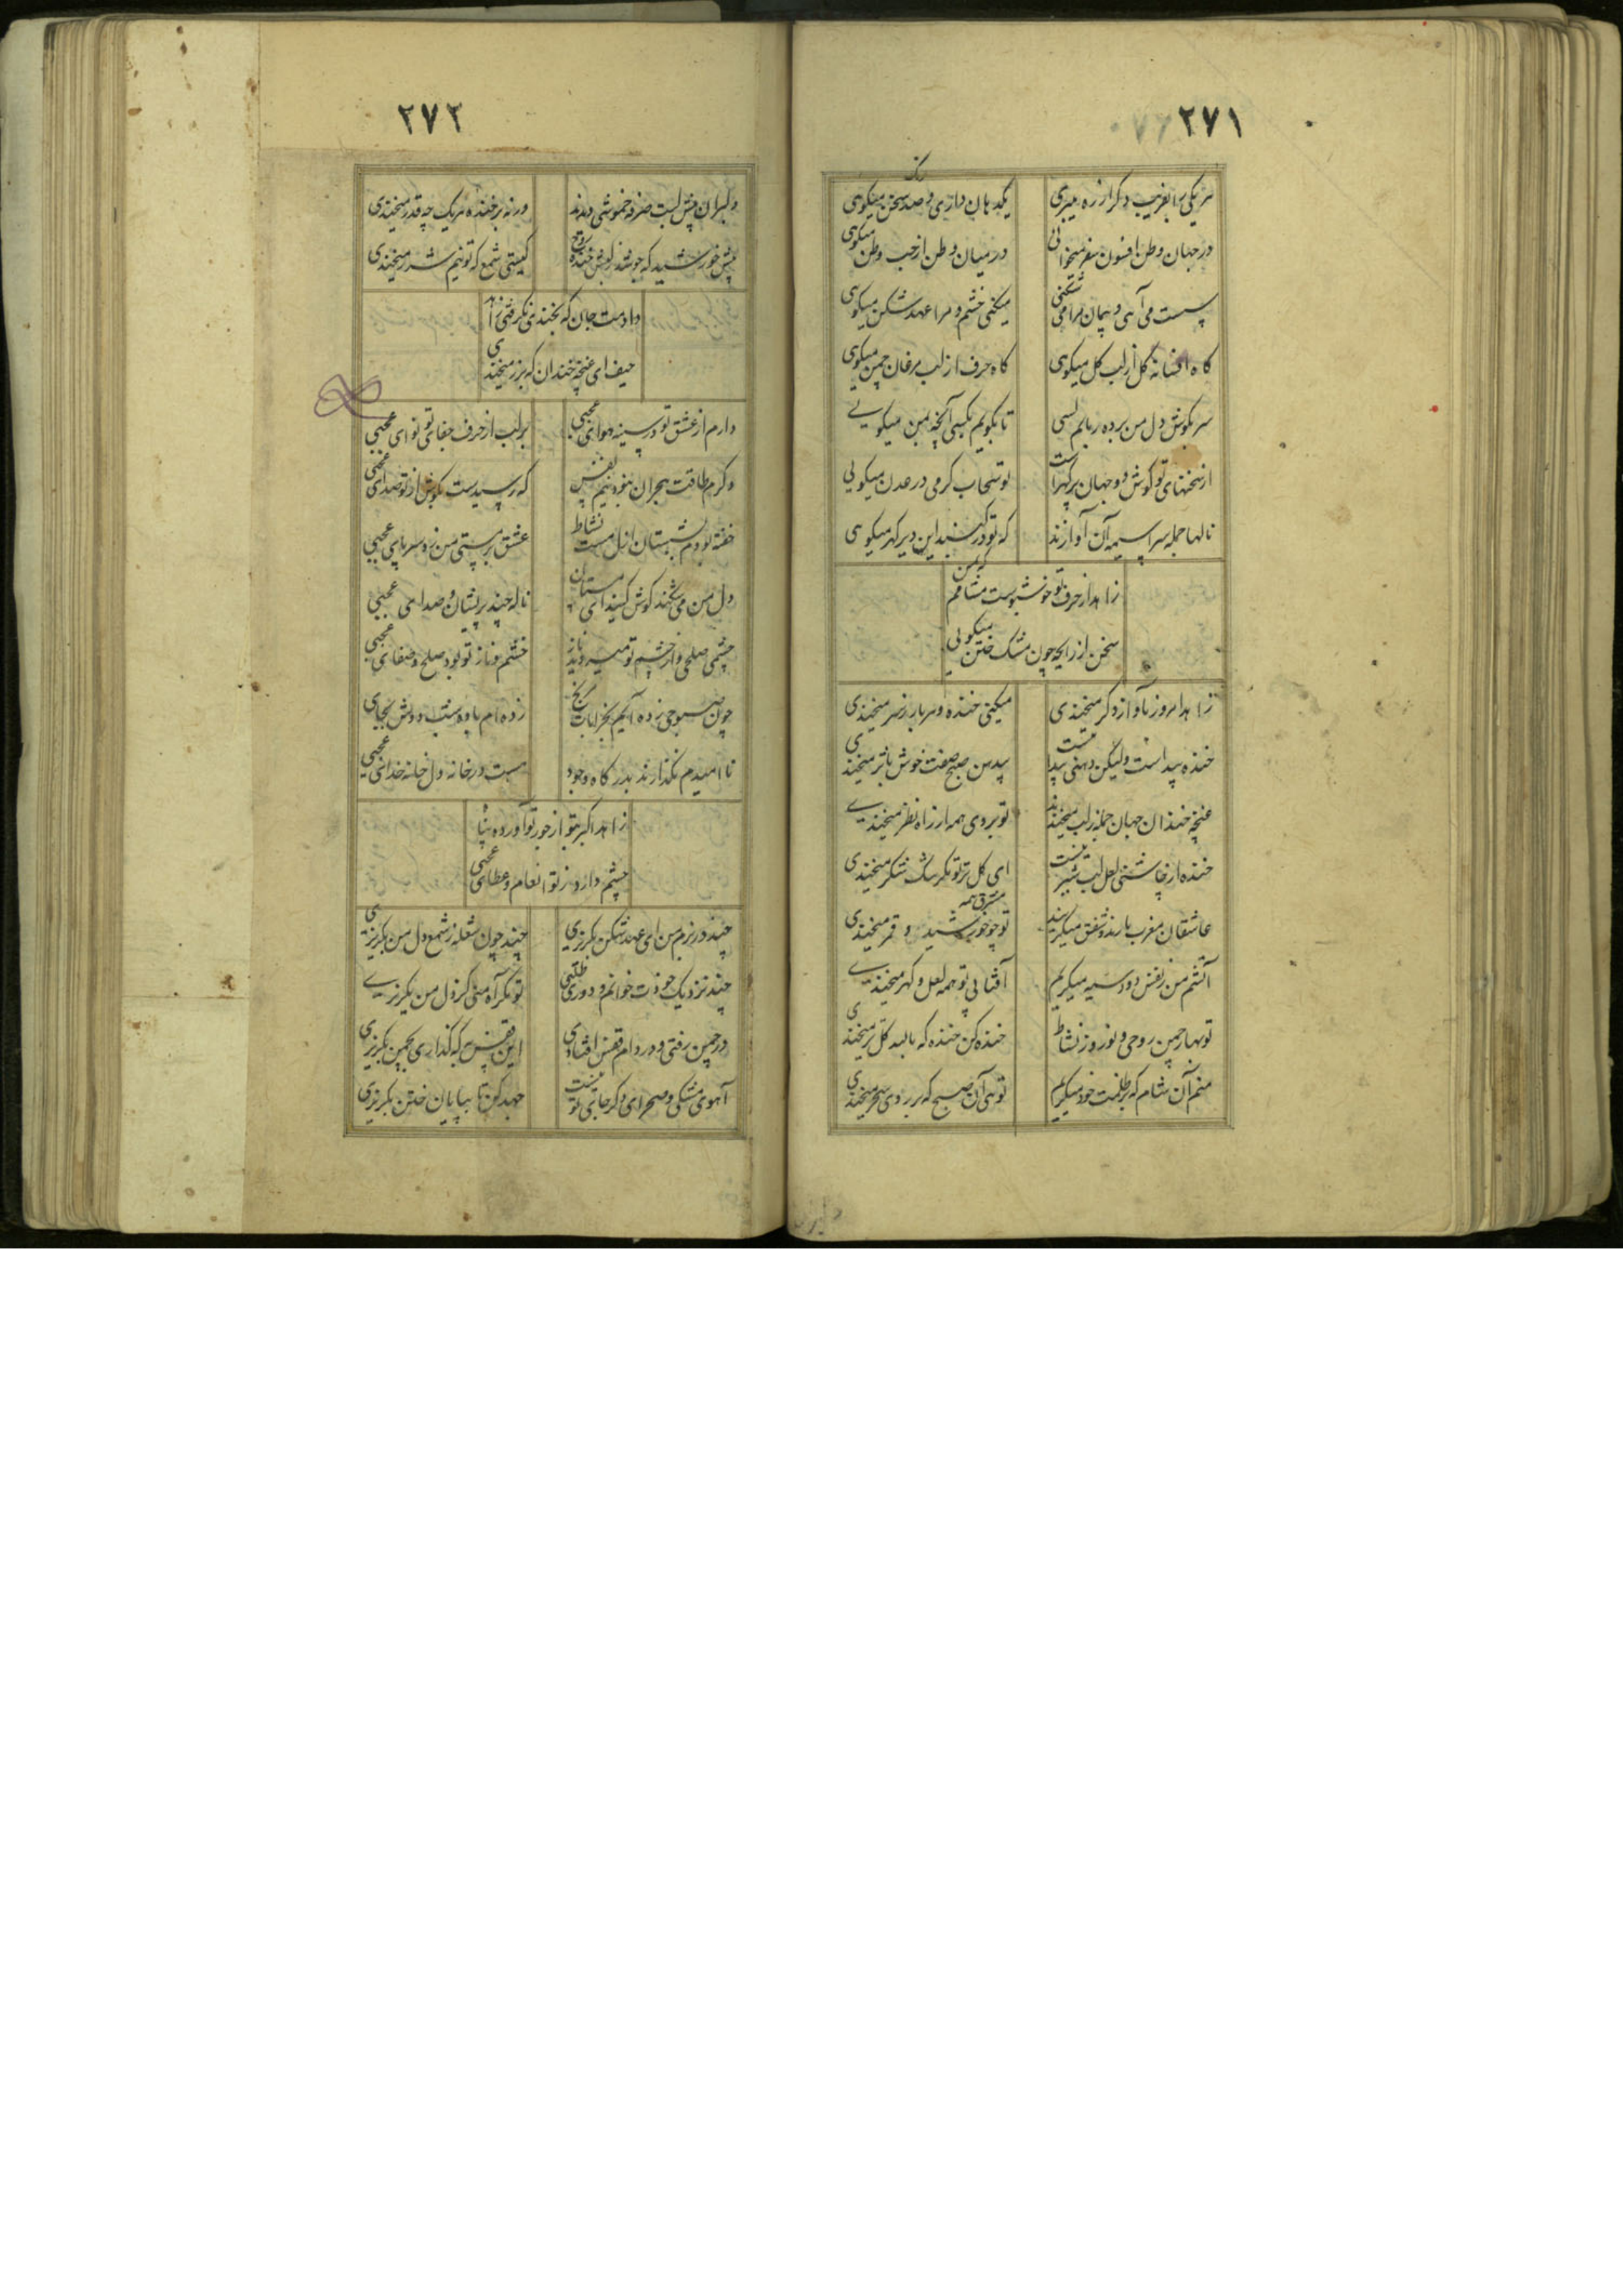 ۲۷۱
هر یکی را بفریب دکر از ره میبری یکدهان داری و صد سخن میکوی
در جهان وطن افسون سفر میخوانی در میان وطن از حب وطن میکوی
پست می آیی و پیمان مرا می شکنی میکنی خشم و مرا عهد شکن میکوی
کاه افسانه کل از لب کل میکوی کاه حرف از لب مرغان چمن میکوی
سر بکوش دل من برده ربابم لسی تا بکویم بکسی آنچه بمن میکویی
از سخنهای تو کوش دو جهان پر کهر است تو سحاب کرمی در عدن میکویی
نالها جمله سراسیمه آن آوازند که تو در کنبد این دیر کهن میکوی
زاهد از حرف تو خوشبوست مشامم
سخن از رایحه چون مشک ختن میکویی
زاهد امروز بآواز دکر میخندی میکنی خنده و سربار ز سر میخندی
خنده پیداست ولیکن دهنی پیدا نیست بدهن صبح صفت خوش باثر میخندی
غنچه خندان جهان جمله ز لب میخندند تو بروی همه از راه نظر میخندی
خنده از چاشنی لعل لبت شیرینست ای کل تر تو مکر تنک شکر میخندی
عاشقان مغرب بارند و شفق میکریند تو چو خورشید و قمر میخندی
مشرق همه
آتشم من ز نفس دود سیه میکریم آفتابی تو همه لعل و کهر میخندی
تو بهار چمن روحی و نوروز نشاط خنده کن خنده که بالبد کل تر میخندی
منم آن شام که بر ظلمت خود میکریم توئی آن صبح که بر روی سحر میخندی
۲۷۲
دلبران پیش لبت صرفه خموشی دیدند ورنه بر خنده هر یک چه قدر میخندی
پیش خورشید که جوشد ز لبش خنده روح کیستی شمع که تو نیم شرر میخندی
دادمت جان که بخندی نکرفتی زاهد
حیف ای غنچه خندان که بزر میخندی
دارم از عشق تو در سینه هوای عجبی بر لب از حرف جفای تو نوای عجبی
دکرم طاقت هجران نبود نیم نفس که رسیدست بکوش از تو صدای عجبی
خفته بودم بشبستان ازل مست نشاط عشق بر مستی من زد سر پای عجبی
دل من می شکند کوش کنید ای مستان ناله چند پریشان و صدای عجبی
چشمی صلحی و از خشم تو میروید ناز خشم و ناز تو بود صلح و صفای عجبی
چون صبوحی زده آیم بخرابات کنج زده ام باده شب دوش بجای
ناامیدم نکذارند بدر کاه وجود هست در خانه دل خانه خدای عجبی
زاهد اکبر بتو از جور تو آورده پناه
چشم دارد ز تو انعام و عطای عجبی
چند در بزم من ای عهد شکن بکریزی چند چون شعله ز شمع دل من بکریزی
چند نزدیک خودت خوانم و دوری طلبی تو مکر آه منی کز دل من بکریزی
در چمن رفتی و در دام قفس افتادی این قفس که کذاری بچمن بکریزی
آهوی مشکی و صحرای دکر جای تو نیست جهد کن تا بیابان ختن بکریزی